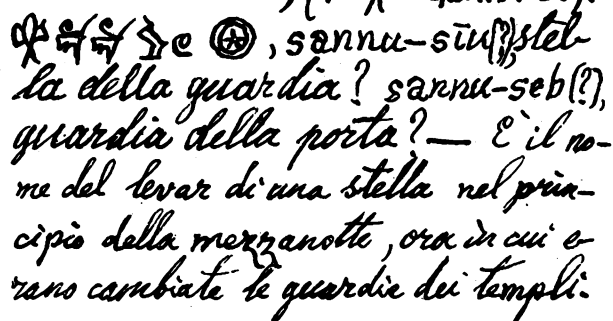 , sannu-sīu(?), stel-
la della guardia? sannu-seb(?),
guardia della porta? — È il no-
me del levar di una stella nel prin-
cipio della mezzanotte, ora in cui e-
rano cambiate le guardie dei templi.